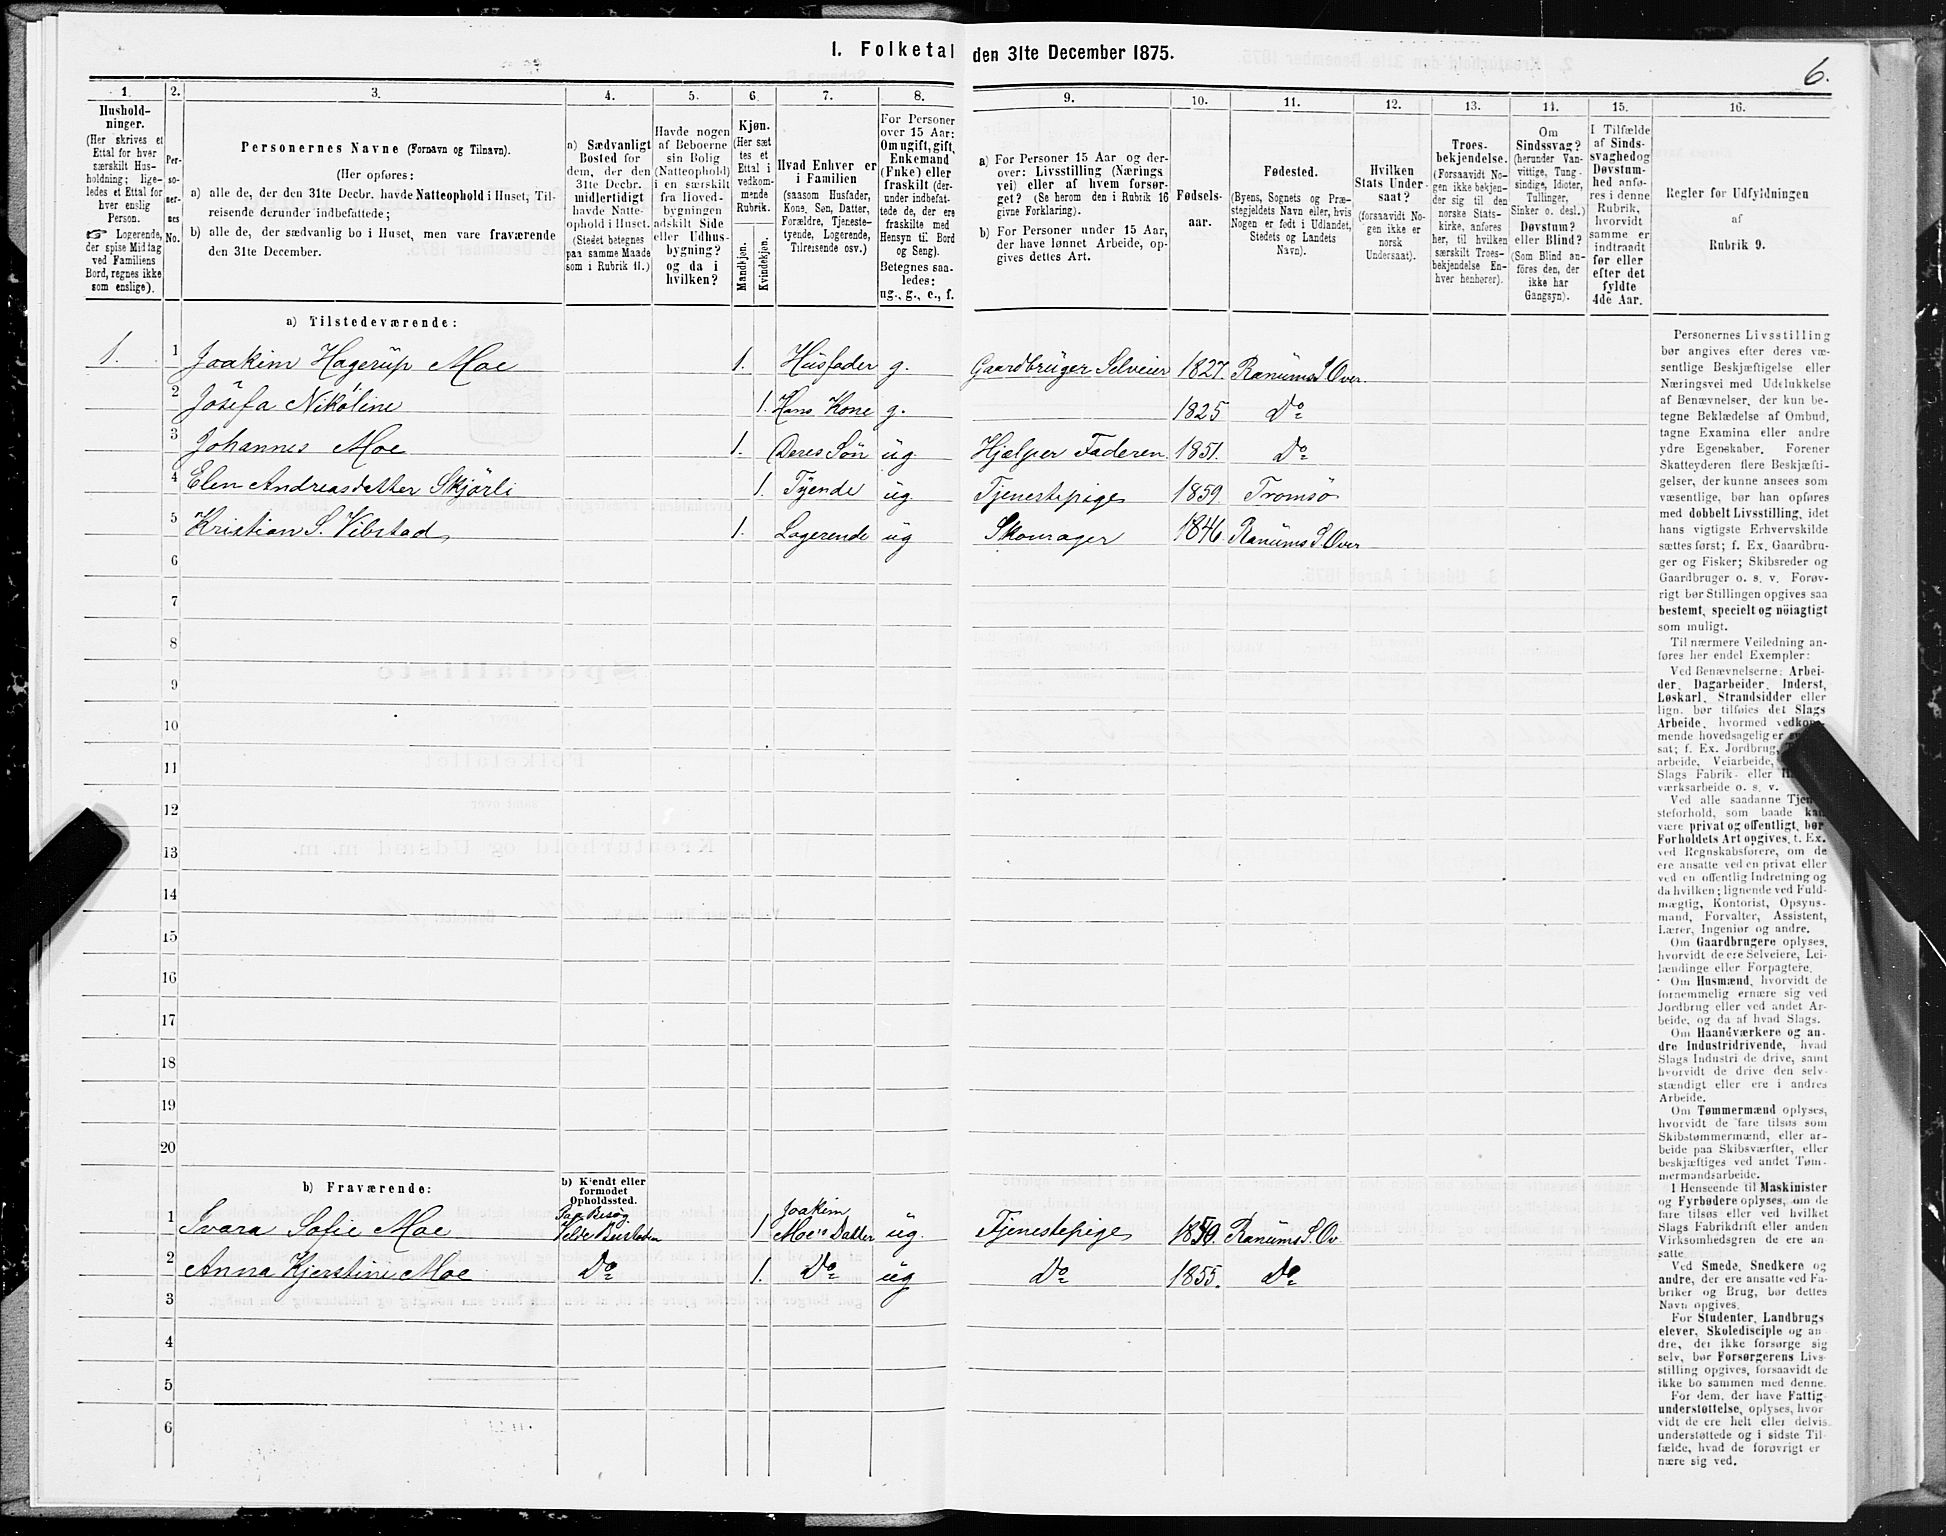 I. Folketal den 31te December 1875.
6.
1.
Hushold-
ninger.
(Her skrives et
Ettal for hver
særskilt Hus-
holdning; lige-
ledes et Ettal for
hver enslig
Person.
☞ Logerende,
der spise Middag
ved Familiens
Bord, regnes ikke
som enslige).
2.
Per-
so-
ner-
nes
No.
3.
Personernes Navne (Fornavn og Tilnavn).
(Her opføres:
a) alle de, der den 31te Decbr. havde Natteophold i Huset, Til-
reisende derunder indbefattede;
b) alle de, der sædvanlig bo i Huset, men vare fraværende
den 31te December.
4.
a) Sædvanligt
Bosted for
dem, der den
31te Decbr.
midlertidigt
havde Natte-
ophold i Huset.
(Stedet betegnes
paa samme Maade
som i Rubrik 11.)
5.
Havde nogen
af Beboerne
sin Bolig
(Natteophold)
i en særskilt
fra Hoved-
bygningen
adskilt Side
eller Udhus-
bygning?
og da i
hvilken?
6.
Kjøn.
(Her sæt
tes et
Ettal i
vedkom-
mende
Rubrik.
Mandkjøn.
Kvindekjøn.
7.
Hvad Enhver er
i Familien
(saasom Husfader,
Kone, Søn, Datter,
Forældre, Tjeneste-
tyende, Logerende,
Tilreisende osv.)
8.
For Personer
over 15 Aar:
Om ugift, gift,
Enkemand
(Enke) eller
fraskilt (der-
under indbefat-
tede de, der ere
fraskilte med
Hensyn til Bord
og Seng).
Betegnes saa-
ledes:
ug., g., e., f.
9.
a) For Personer 15 Aar og der-
over: Livsstilling (Nærings
vei) eller af hvem forsør-
get? (Se herom den i Rubrik 16
givne Forklaring).
b) For Personer under 15 Aar,
der have lønnet Arbeide, op-
gives dettes Art.
10.
Fødsels-
aar.
11.
Fødested.
(Byens, Sognets og Præ-
stegjeldets Navn eller, hvis
Nogen er født i Udlandet,
Stedets og Landets
Navn).
12.
Hvilken
Stats Under-
saat?
(forsaavidt No-
gen ikke er
norsk
Undersaat).
13.
Troes-
bekjendelse.
(Forsaavidt No-
gen ikke bekjen-
der sig til den
norske Stats-
kirke, anføres
her, til hvilken
særskilt Troes-
bekjendelse En-
hver henhører).
14.
Om
Sindssvag?
(herunder Van-
vittige, Tung-
sindige, Idioter,
Tullinger,
Sinker o. desl.)
Døvstum?
eller Blind?
(Som Blind an-
føres den, der
ikke har
Gangsyn).
15.
I Tilfælde
af Sinds-
svaghed og
Døvstum-
hed anfø-
res i denne
Rubrik,
hvorvidt
samme er
indtraadt
før eller
efter det
fyldte
4de Aar.
16.
Regler for Udfyldningen
af
Rubrik 9.
a) Tilstedeværende:
1. 1 Joakim Hagerup Moe 1. Husfader g. Gaardbruger Selveier 1827. Ranums S. Over.
2 Josefa Nikoline 1. Hans Kone g. 1825 Do
3 Johannes Moe 1. Deres Søn ug. Hjelper Faderen 1851. Do
4 Elen Andreasdatter Skjørli 1. Tyende ug. Tjenestepige 1859. Tromsø
5 Kristian S. Vibstad 1. Logerende ug Skomager 1846. Ranums S. Over
6
7
8
9
10
11
12
13
14
15
16
17
18
19
20
b) Fraværende:
b) Kjendt eller
formodet
Opholdssted.
1 Svara Sofie Moe Paa Besøg 1 Joakim Moe's Datter ug. Tjenestepige 1850. Ranums S. Ov.
2 Anna Kjerstine Moe Do 1. Do ug Do 1855. Do
3
4
5
6
Personernes Livsstilling
bør angives efter deres væ-
sentlige Beskjæftigelse eller
Næringsvei med Udelukkelse
af Benævnelser, der kun be-
tegne Beklædelse af Ombud,
tagne Examina eller andre
ydre Egenskaber. Forener
Skatteyderen flere Beskjæfti-
gelser, der kunne ansees som
væsentlige, bør han opføres
med dobbelt Livsstilling, idet
hans vigtigste Erhvervskilde
sættes først; f. Ex. Gaardbru-
ger og Fisker; Skibsreder og
Gaardbruger o. s. v. Forøv-
rigt bør Stillingen opgives saa
bestemt, specielt og nöiagtigt
som muligt.
Til nærmere Veiledning an-
føres her endel Exempler:
Ved Benævnelserne: Arbei-
der, Dagarbeider, Inderst,
Løskarl, Strandsidder eller
lign. bør tilføies det Slags
Arbeide, hvormed vedkom-
mende hovedsagelig er
sat; f. Ex. Jordbrug,
arbeide, Veiarbeide,
Slags Fabrik- eller
værksarbeide o. s. v.
Ved alle saadanne Tjene-
steforhold, som baade kan
være privat og offentligt, bør
Forholdets Art opgives, t. Ex.
ved Regnskabsførere, om de
ere ansatte ved en privat eller
ved en offentlig Indretning og
da hvilken; lignende ved Fuld-
mægtig, Kontorist, Opsyns-
mand, Forvalter, Assistent,
Lærer, Ingeniør og andre.
Om Gaardbrugere oplyses,
hvorvidt de ere Selveiere, Lei-
lændinge eller Forpagtere.
Om Husmænd, hvorvidt de
fornemmelig ernære sig ved
Jordbrug eller ved andet Ar-
beide, og da af hvad Slags.
Om Haandværkere og an-
dre Industridrivende, hvad
Slags Industri de drive, samt
hvorvidt de drive den selv-
stændigt eller ere i andres
Arbeide.
Om Tømmermænd oplyses,
hvorvidt de fare tilsøs som
Skibstømmermænd, eller ar-
beide paa Skibsværfter, eller
beskjæftiges ved andet Tøm-
mermandsarbeide.
I Henseende til Maskinister
og Fyrbødere oplyses, om de
fare tilsøs eller ved hvilket
Slags Fabrikdrift eller anden
Virksomhedsgren de ere an-
satte
Ved Smede, Snedkere og
andre, der ere ansatte ved Fa-
briker og Brug, bør dettes
Navn opgives.
For Studenter, Landbrugs
elever, Skoledisciple og an-
dre, der ikke forsørge sig
selv, bør Forsørgerens Livs-
stilling opgives, forsaavidt de
ikke bo sammen med denne.
For dem, der have Fattig-
understøttelse, oplyses, hvor
vidt de ere helt eller delvis
understøttede og i sidste Til-
fælde, hvad de forøvrigt er
nære sig ved.